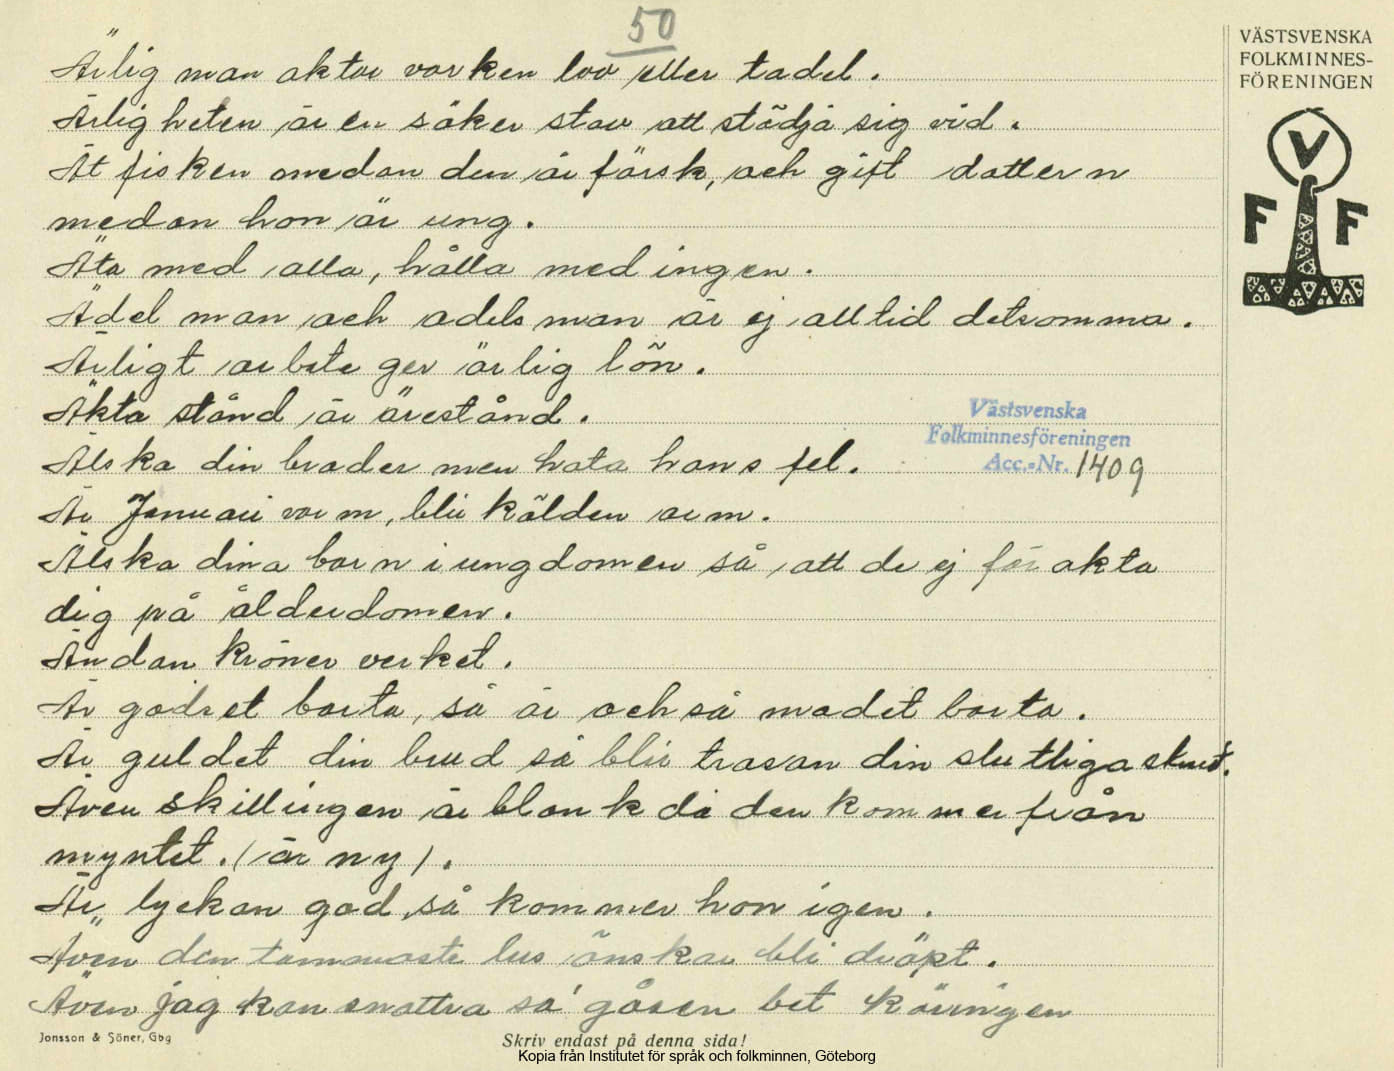 50
VÄSTSVENSKA
FOLKMINNES-
FÖRENINGEN
V
F F
Ärlig man aktar varken lov eller tadel.
Ärligheten är en säker stav att stödja sig vid.
Ät fisken medan den är färsk, och gift dottern
medan hon är ung.
Äta med alla, hålla med ingen.
Ädel man och adelsman är ej alltid detsamma.
Ärligt arbete ger ärlig lön.
Äkta stånd är ärestånd.
Älska din broder men hata hans fel.
Västsvenska
Folkminnesföreningen
Acc.-Nr. 1409
Är Januari varm, blir kälden arm.
Älska dina barn i ungdomen så att de ej förakta
dig på ålderdomen.
Ändan kröner verket.
Är godset borta, så är också modet borta.
Är guldet din brud så blir trasan din slutliga skrud.
Även skillingen är blank då den kommer från
myntet. (är ny).
Är lyckan god, så kommer hon igen.
Även den tammaste lus önskar bli dräpt.
Även jag kan snattra sa' gåsen bet käringen
Jonsson & Söner, Gbg
Skriv endast på denna sida!
Kopia från Institutet för språk och folkminnen, Göteborg